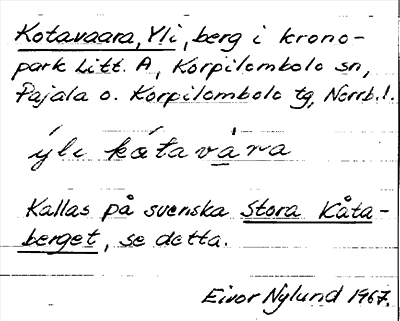 Kotavaara, Yli, berg i krono-
park Litt. A, Korpilombolo sn,
Pajala o. Korpilombolo tg, Norrb.l.
ýli kótavàra
Kallas på svenska Stora Kåta-
berget, se detta.
Eivor Nylund 1967.